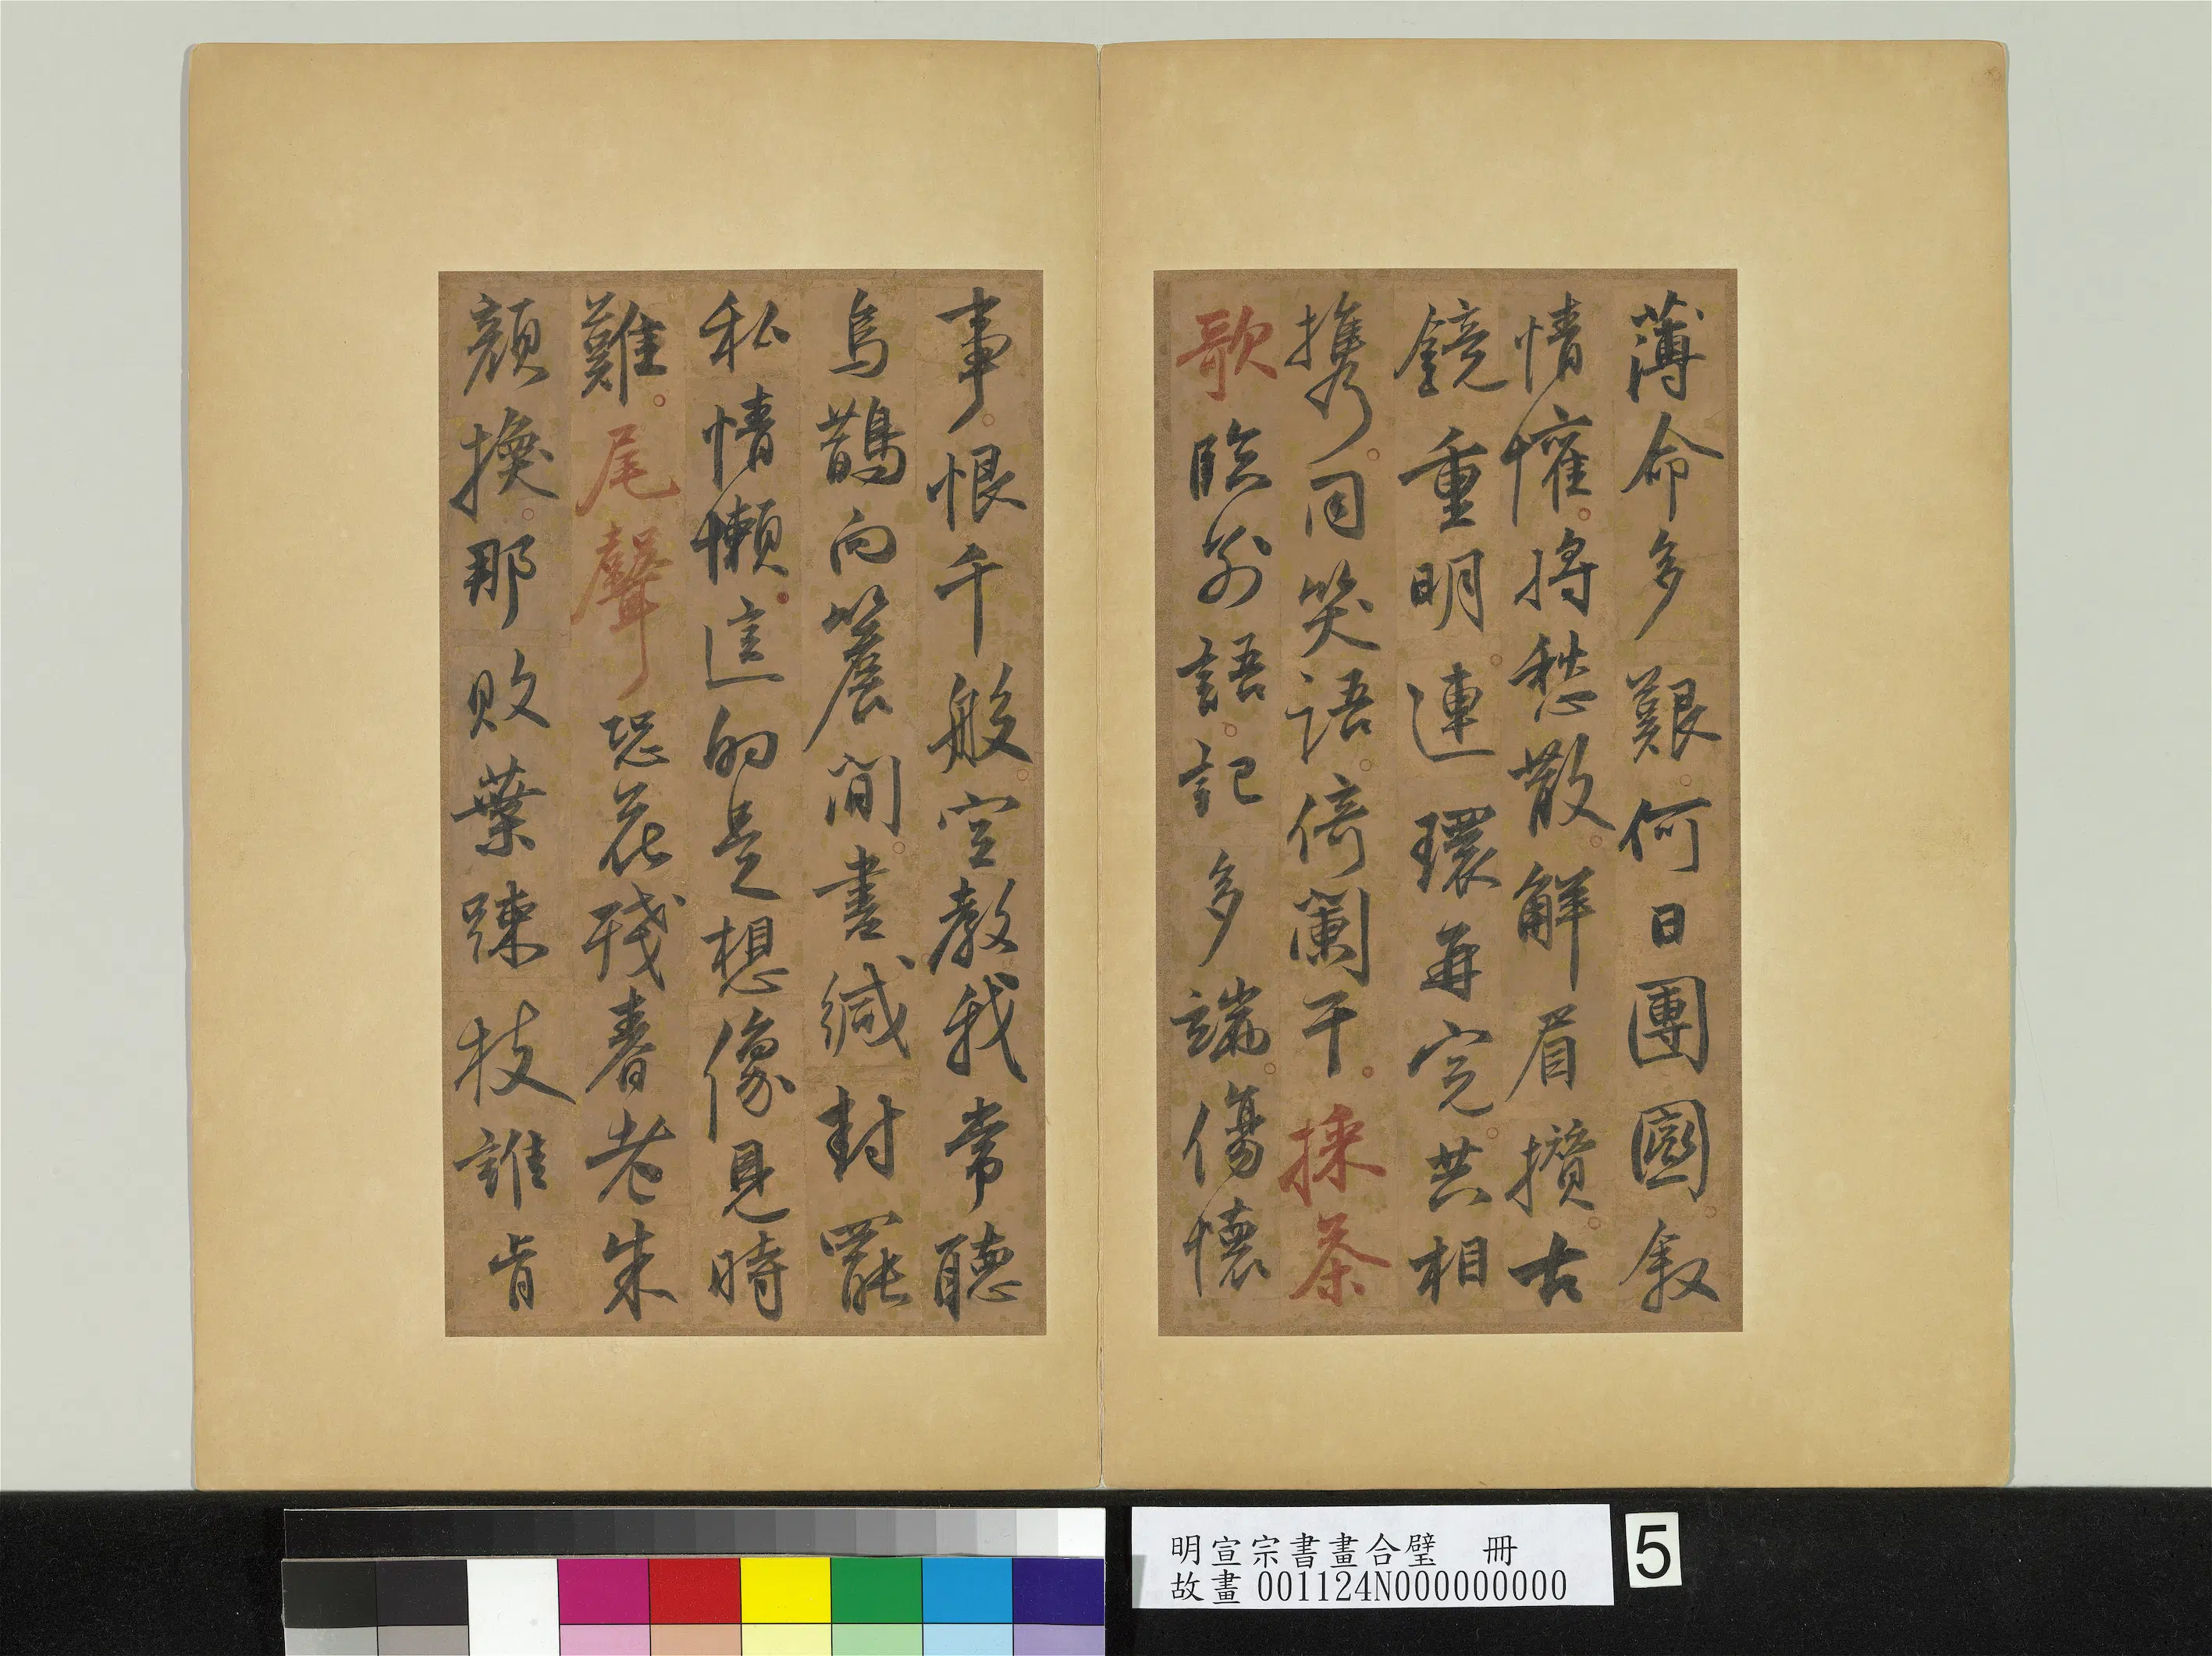 薄命多艱何日團圞敘
情懽將愁散解眉攢古
鏡重明連環再完共相
携同笑語倚闌干採茶
歌臨別語記多端傷懷
事恨千般空教我常聽
烏鵲向簷間書緘封罷
私情懶這的是想像見時
難尾聲恐花殘春老朱
顏換那敗葉踈枝誰肯
明宣宗書畫合璧 冊
故畫 001124N000000000
5